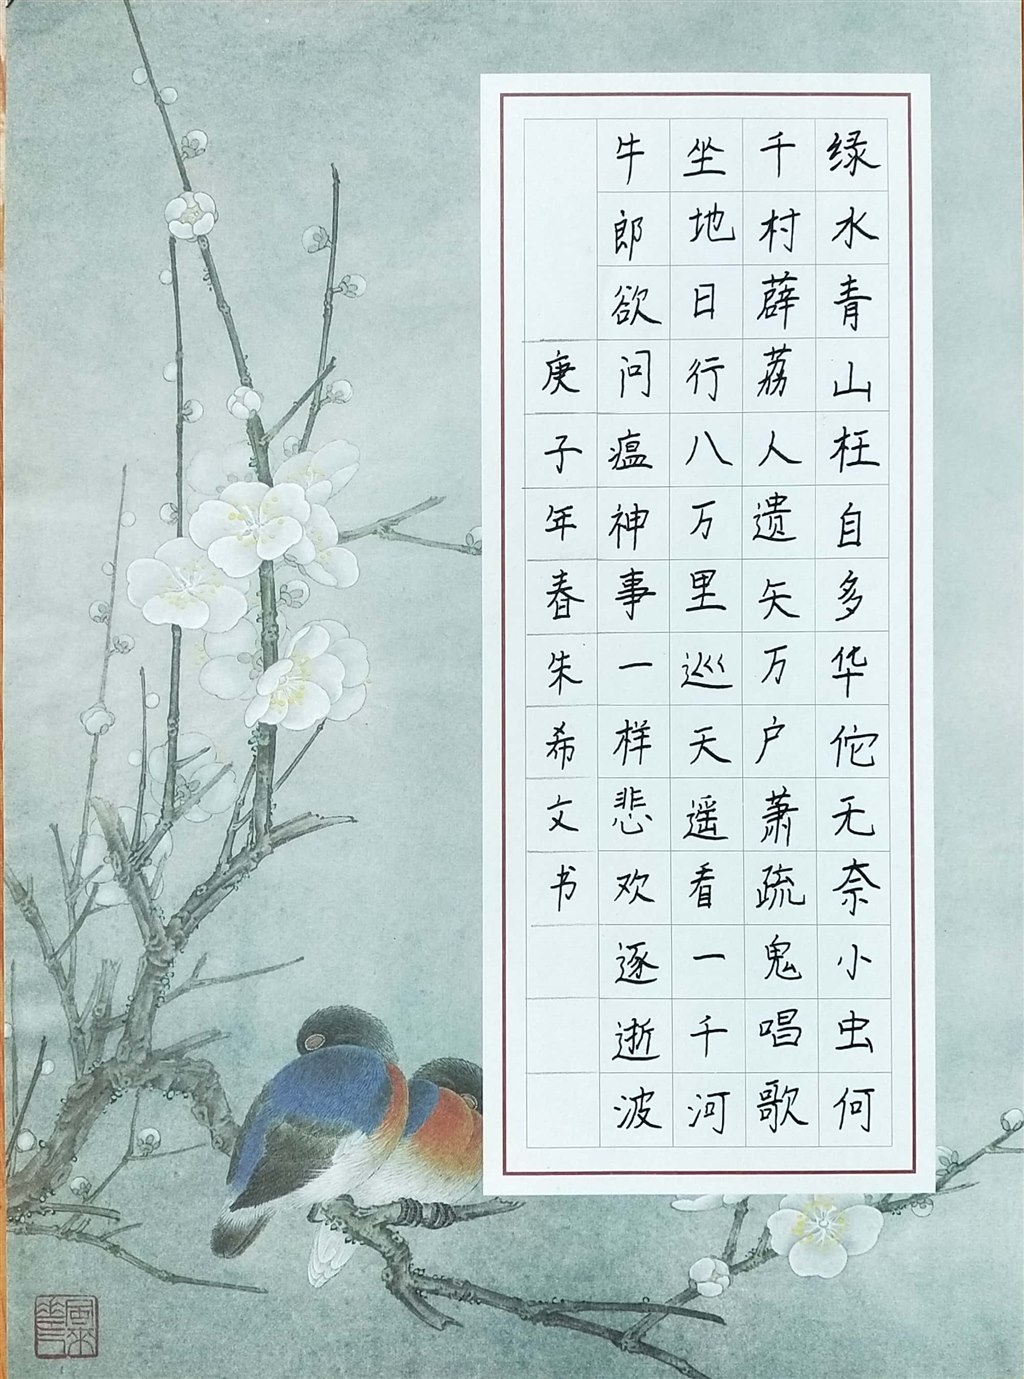 绿水青山枉自多华佗无奈小虫何
千村薜荔人遗矢万户萧疏鬼唱歌
坐地日行八万里巡天遥看一千河
牛郎欲问瘟神事一样悲欢逐逝波
庚子年春朱希文书